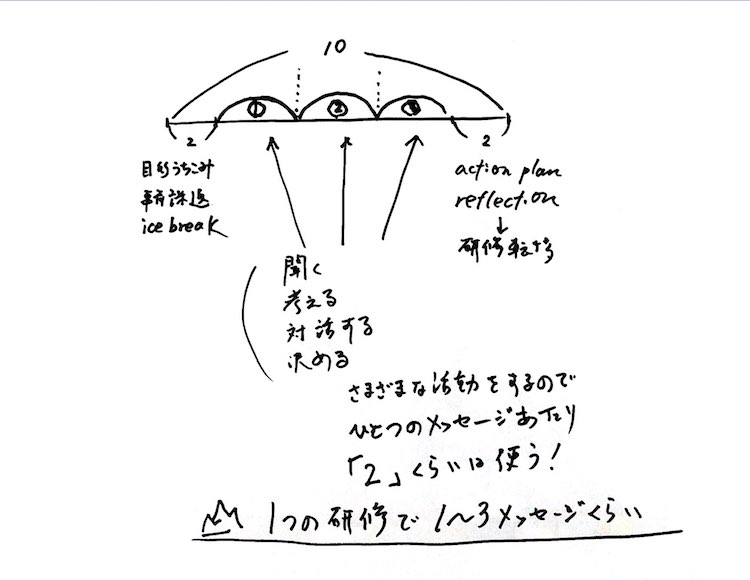 10
① ② ③
2 2
目的うちこみ
事前課題
ice break
action plan
reflection
↓
研修転移
聞く
考える
対話する
決める
さまざまな活動をするので
ひとつのメッセージあたり
「2」くらいは使う!
1つの研修で1〜3メッセージくらい